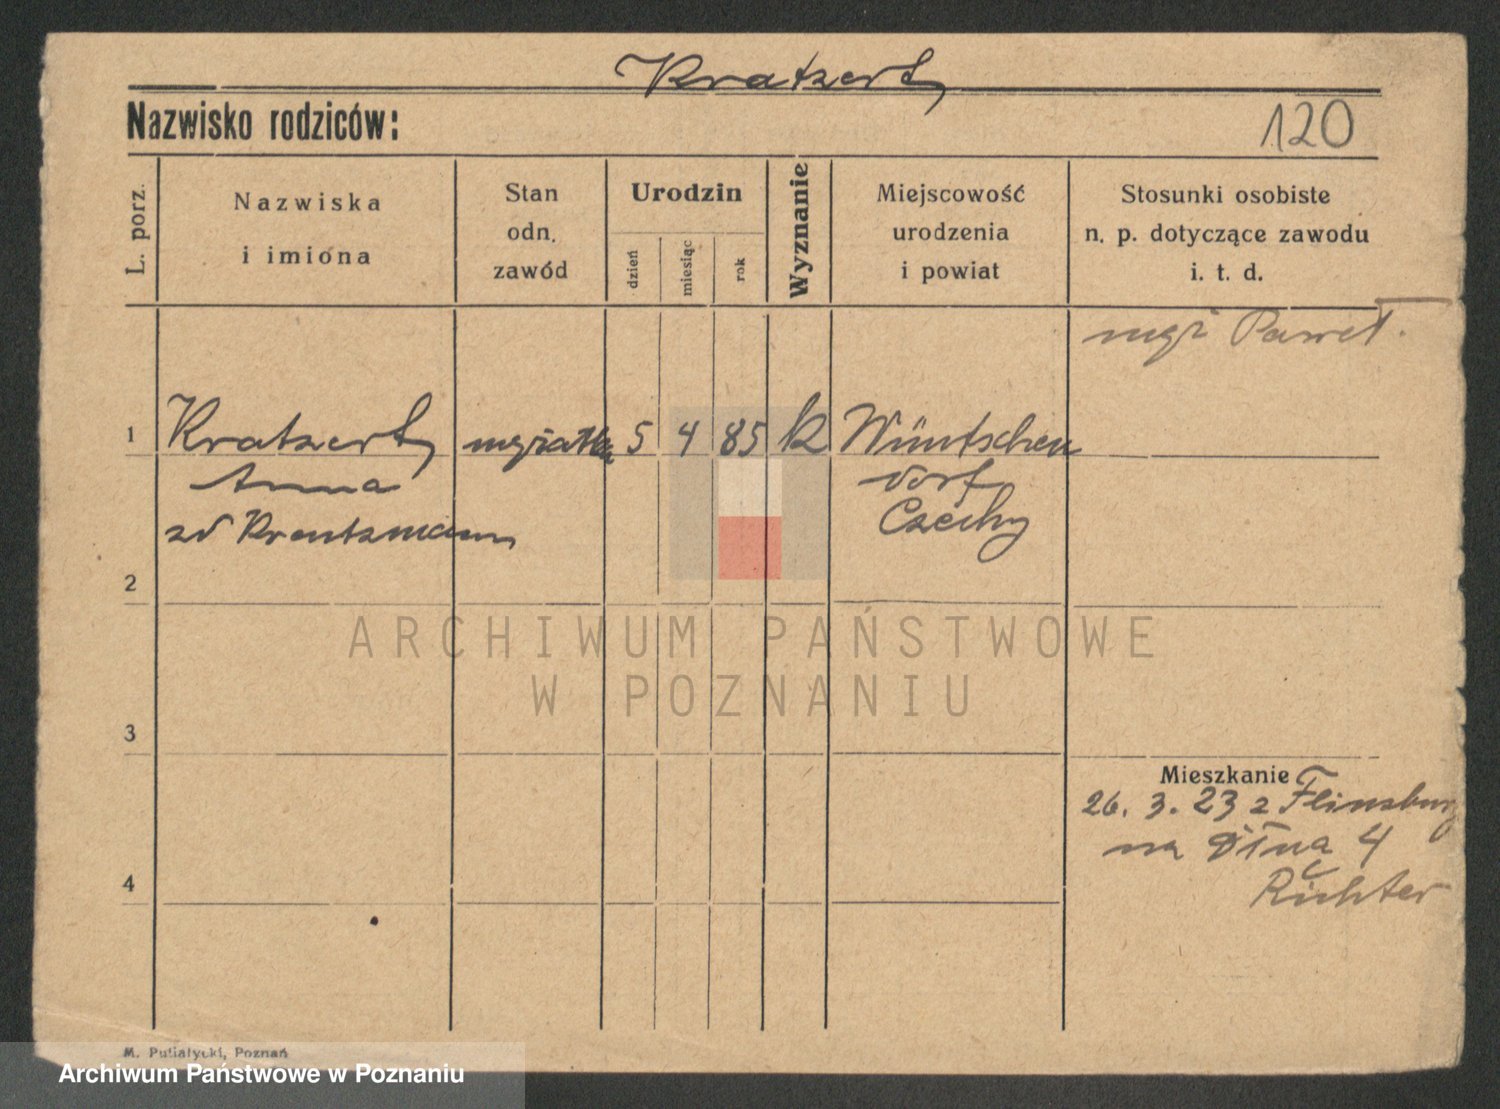 Kratzert
Nazwisko rodziców:
120
L. porz.
Nazwiska
i imiona
Stan
odn.
zawód
Urodzin
dzień
miesiąc
rok
Wyznanie
Miejscowość
urodzenia
i powiat
Stosunki osobiste
n. p. dotyczące zawodu
i. t. d.
mąż Paweł.
1 Kratzert mężatka 5 4 85 k Wüntschen
Anna dorf
Czechy
2
ARCHIWUM PAŃSTWOWE
W POZNANIU
3
Mieszkanie
26. 3. 23 z Flinsburg
na 4
4
Richter
M. Putiatycki, Poznań
Archiwum Państwowe w Poznaniu